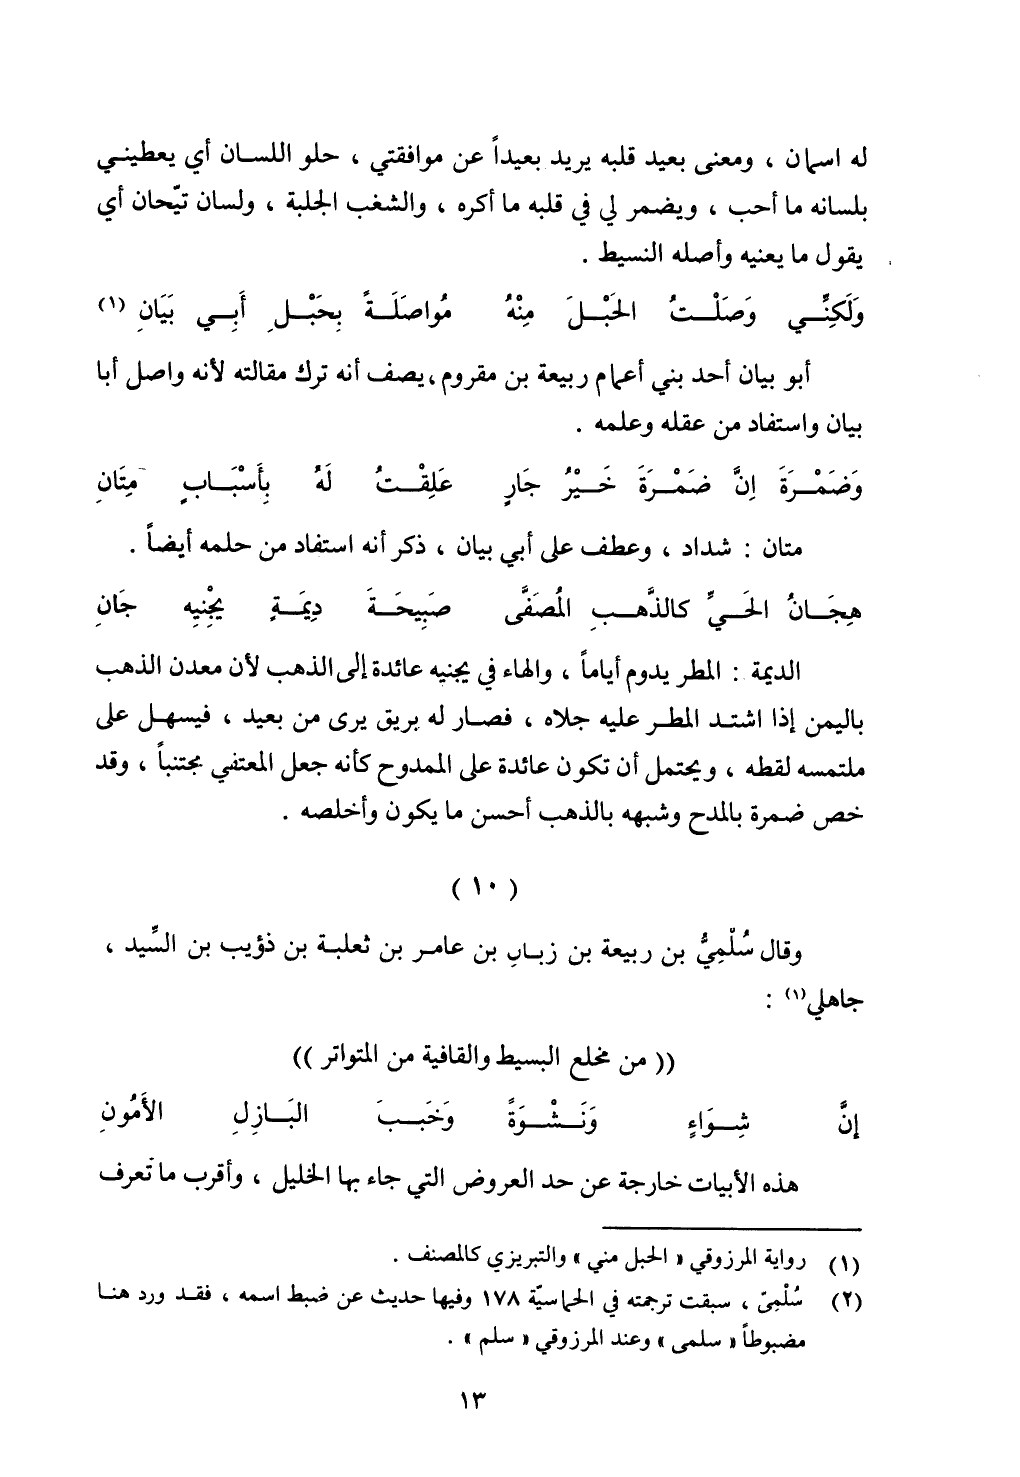 له اسمان ، ومعنى بعيد قلبه يريد بعيداً عن موافقتي ، حلو اللسان أي يعطيني
بلسانه ما أحب ، ويضمر لي في قلبه ما أكره ، والشغب الجلبة ، ولسان تيّحان أي
يقول ما يعنيه وأصله النسيط .
وَلَكِنِّي وَصَلْتُ الحَبْلَ مِنْهُ مُواصَلَةً بِحَبْلِ أَبِي بَيَانِ (١)
أبو بيان أحد بني أعمام ربيعة بن مقروم ، يصف أنه ترك مقالته لأنه واصل أبا
بيان واستفاد من عقله وعلمه .
وَضَمْرَةَ إنَّ ضَمْرَةَ خَيْرُ جَارٍ عَلِقْتُ لَهُ بِأَسْبَابٍ مِتَانِ
متان : شداد ، وعطف على أبي بيان ، ذكر أنه استفاد من حلمه أيضاً .
هِجَانُ الحَيِّ كالذَّهبِ المُصَفَّى صَبِيحَةَ دِيمَةٍ يجْنِيه جَانِ
الديمة : المطر يدوم أياماً ، والهاء في يجنيه عائدة إلى الذهب لأن معدن الذهب
باليمن إذا اشتد المطر عليه جلاه ، فصار له بريق يرى من بعيد ، فيسهل على
ملتمسه لقطه ، ويحتمل أن تكون عائدة على الممدوح كأنه جعل المعتفي مجتنباً ، وقد
خص ضمرة بالمدح وشبهه بالذهب أحسن ما يكون وأخلصه .
( ١٠ )
وقال سُلْمِيُّ بن ربيعة بن زبانِ بن عامر بن ثعلبة بن ذؤيب بن السِّيد ،
جاهلي(١) :
(( من مخلع البسيط والقافية من المتواتر ))
إنَّ شِوَاءٍ وَنَشْوَةً وَخَبَبَ البَازِلِ الأَمُونِ
هذه الأبيات خارجة عن حد العروض التي جاء بها الخليل ، وأقرب ما تعرف
(١) رواية المرزوقي « الحبل مني » والتبريزي كالمصنف .
(٢) سُلْمِيّ ، سبقت ترجمته في الحماسيّة ١٧٨ وفيها حديث عن ضبط اسمه ، فقد ورد هنا
مضبوطاً « سلمى » وعند المرزوقي « سلم » .
١٣